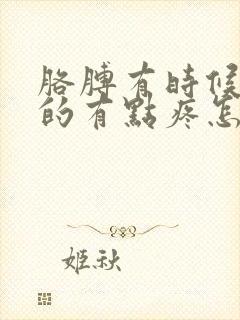 胳膊有時候
的有點疼怎
姬秋